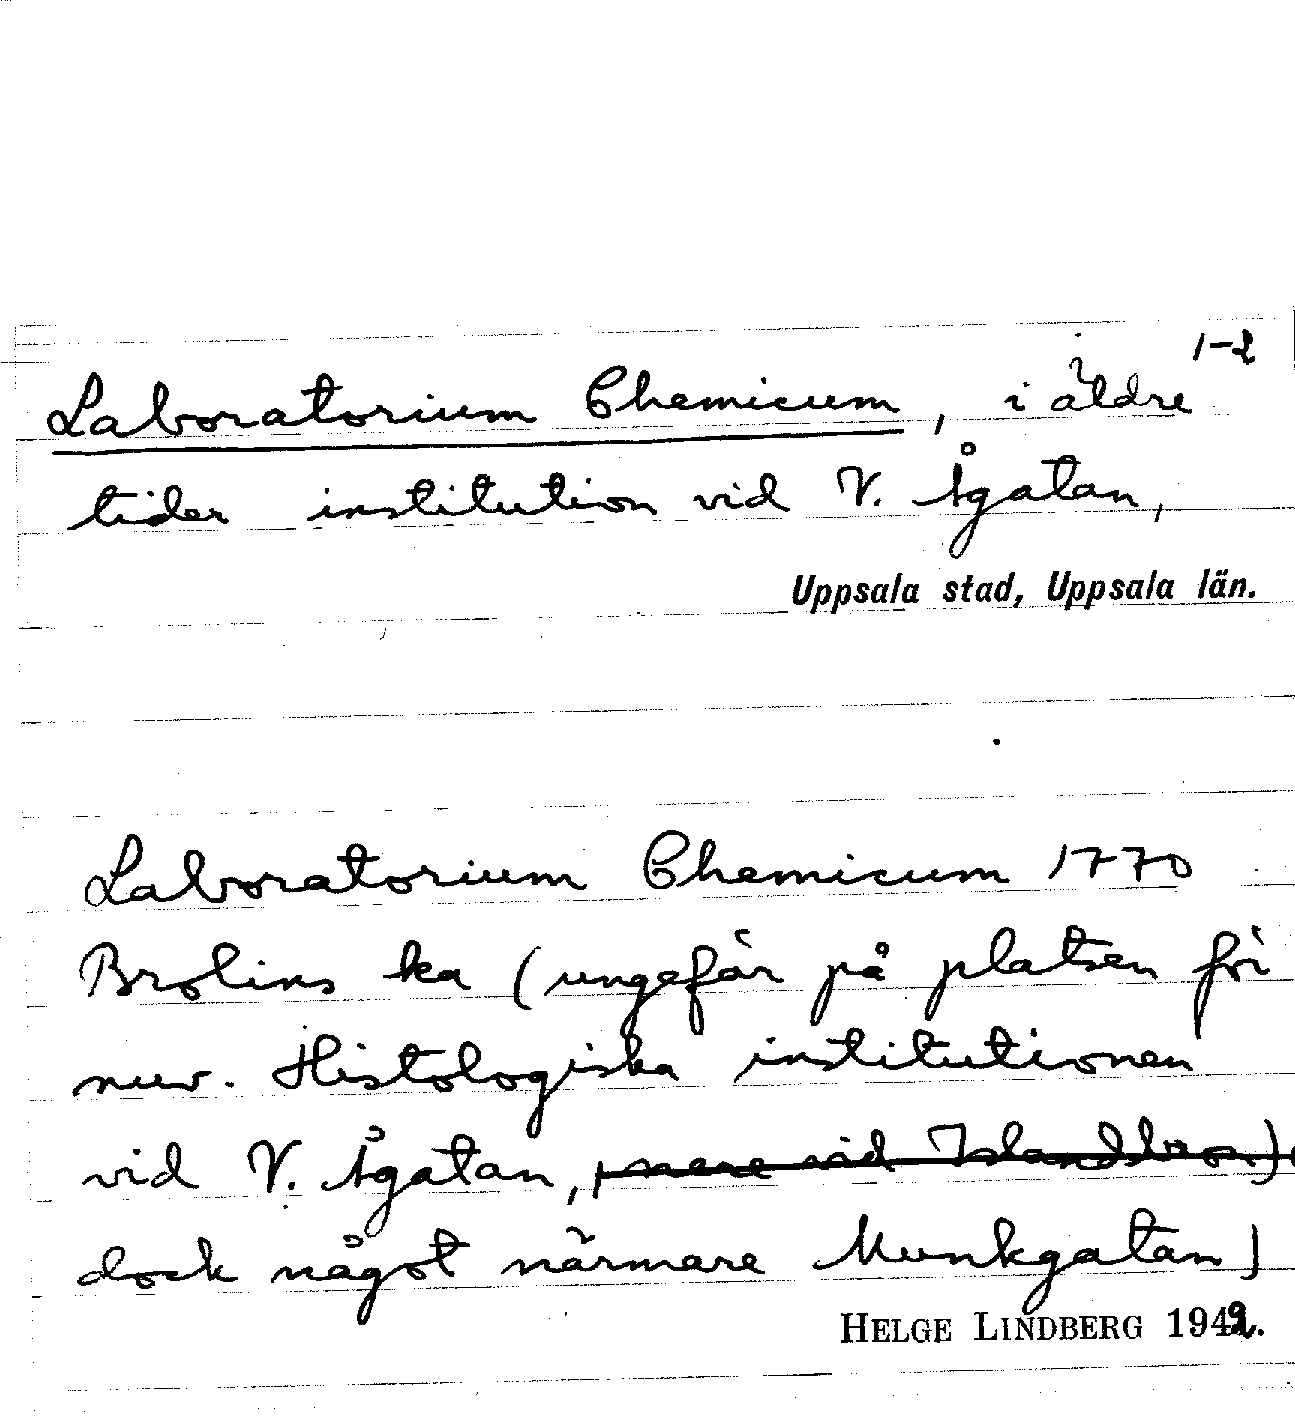 1-2
Laboratorium Chemicum, i äldre
tider institution vid V. Ågatan,
Uppsala stad, Uppsala län.
Laboratorium Chemicum 1770
Brolins ka (ungefär på platsen för
nuv. Histologiska institutionen
vid V. Ågatan, nere vid Islandsbron)
dock något närmare Munkgatan)
HELGE LINDBERG